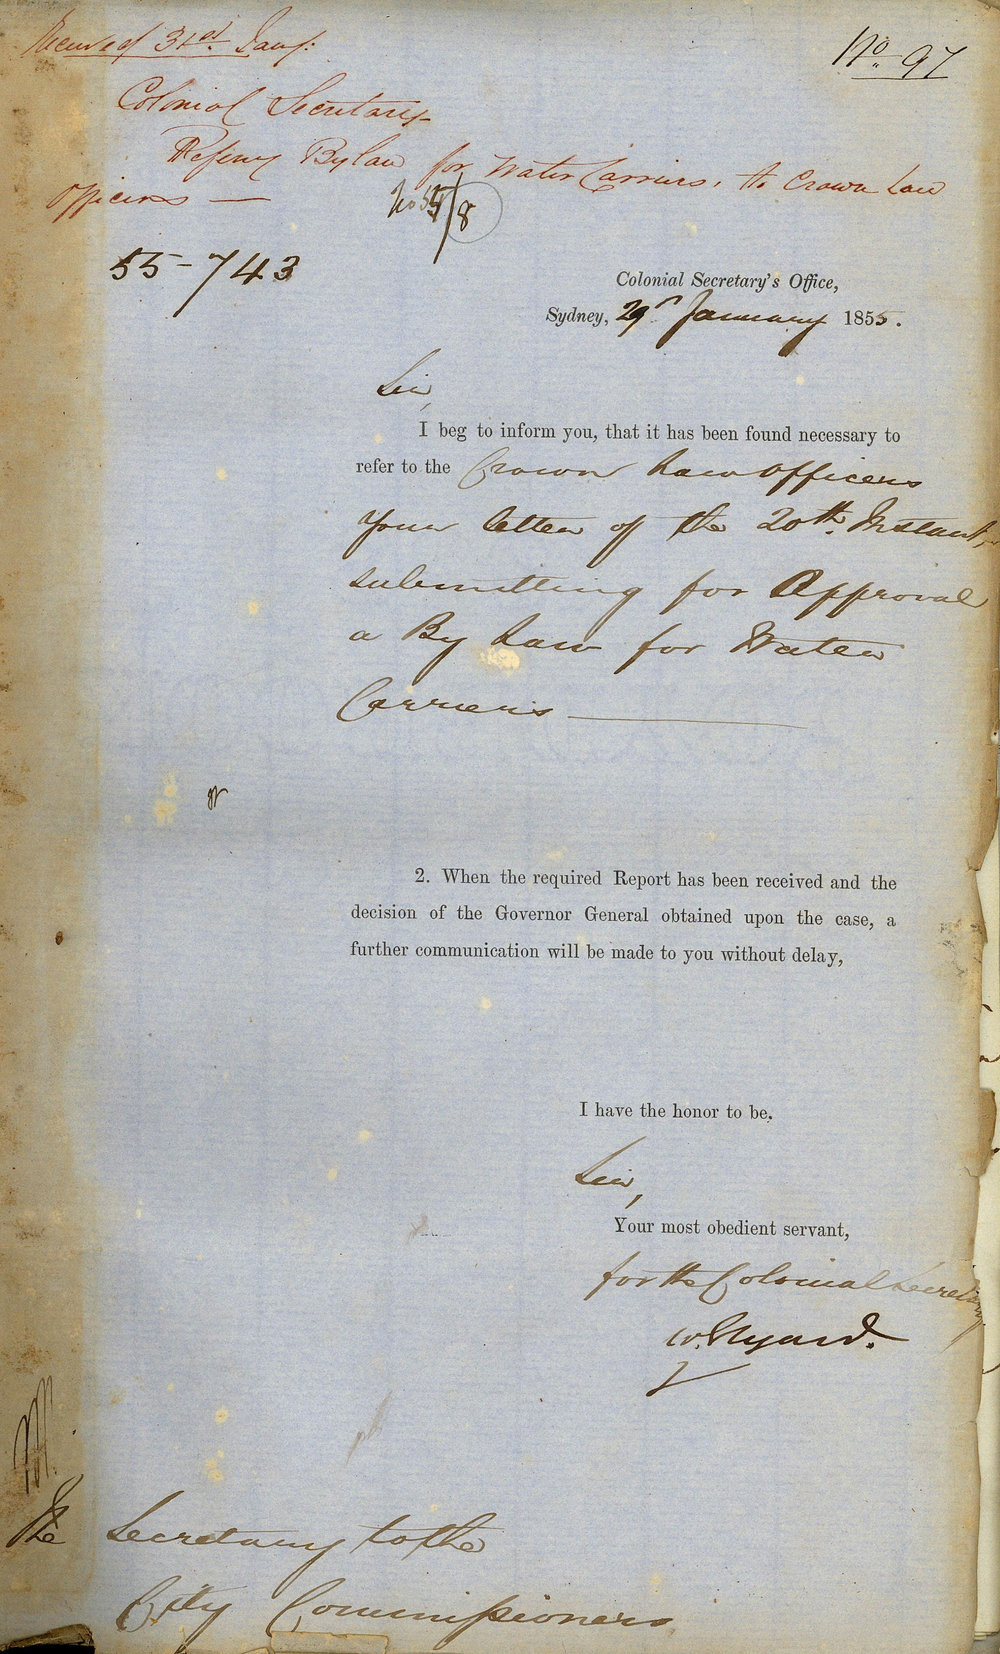 Received 31st Jany.
No. 97
Colonial Secretary
Refering Bylaw for Water Carriers, to Crown Law
Officers —
No 55/8
55-743
Colonial Secretary's Office,
Sydney, 29th January 1855.
Sir,
I beg to inform you, that it has been found necessary to
refer to the Crown Law Officers
Your letter of the 20th Instant,
submitting for Approval
a By Law for Water
Carriers —
2. When the required Report has been received and the
decision of the Governor General obtained upon the case, a
further communication will be made to you without delay,
I have the honor to be.
Sir,
Your most obedient servant,
for the Colonial Secretary
W. Elyard.
The Secretary to the
City Commissioners